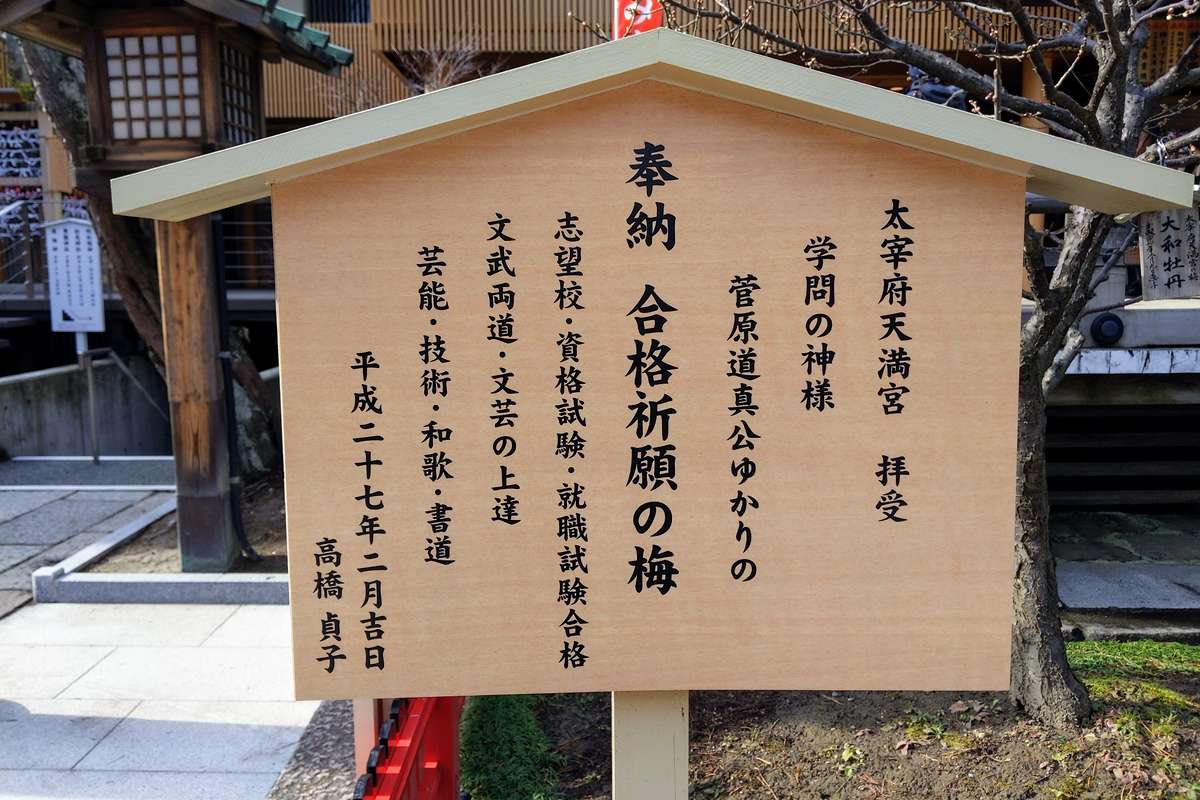 太宰府天満宮 拝受
学問の神様
菅原道真公ゆかりの
奉納 合格祈願の梅
志望校・資格試験・就職試験合格
文武両道・文芸の上達
芸能・技術・和歌・書道
平成二十七年二月吉日
高橋 貞子
大和牡丹